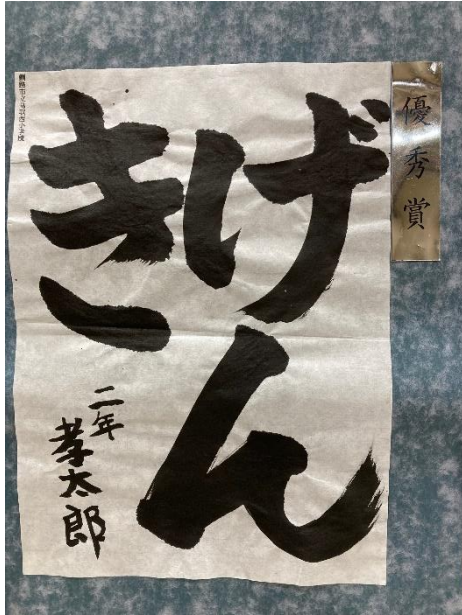 優秀賞
げん
き
二年
孝太郎